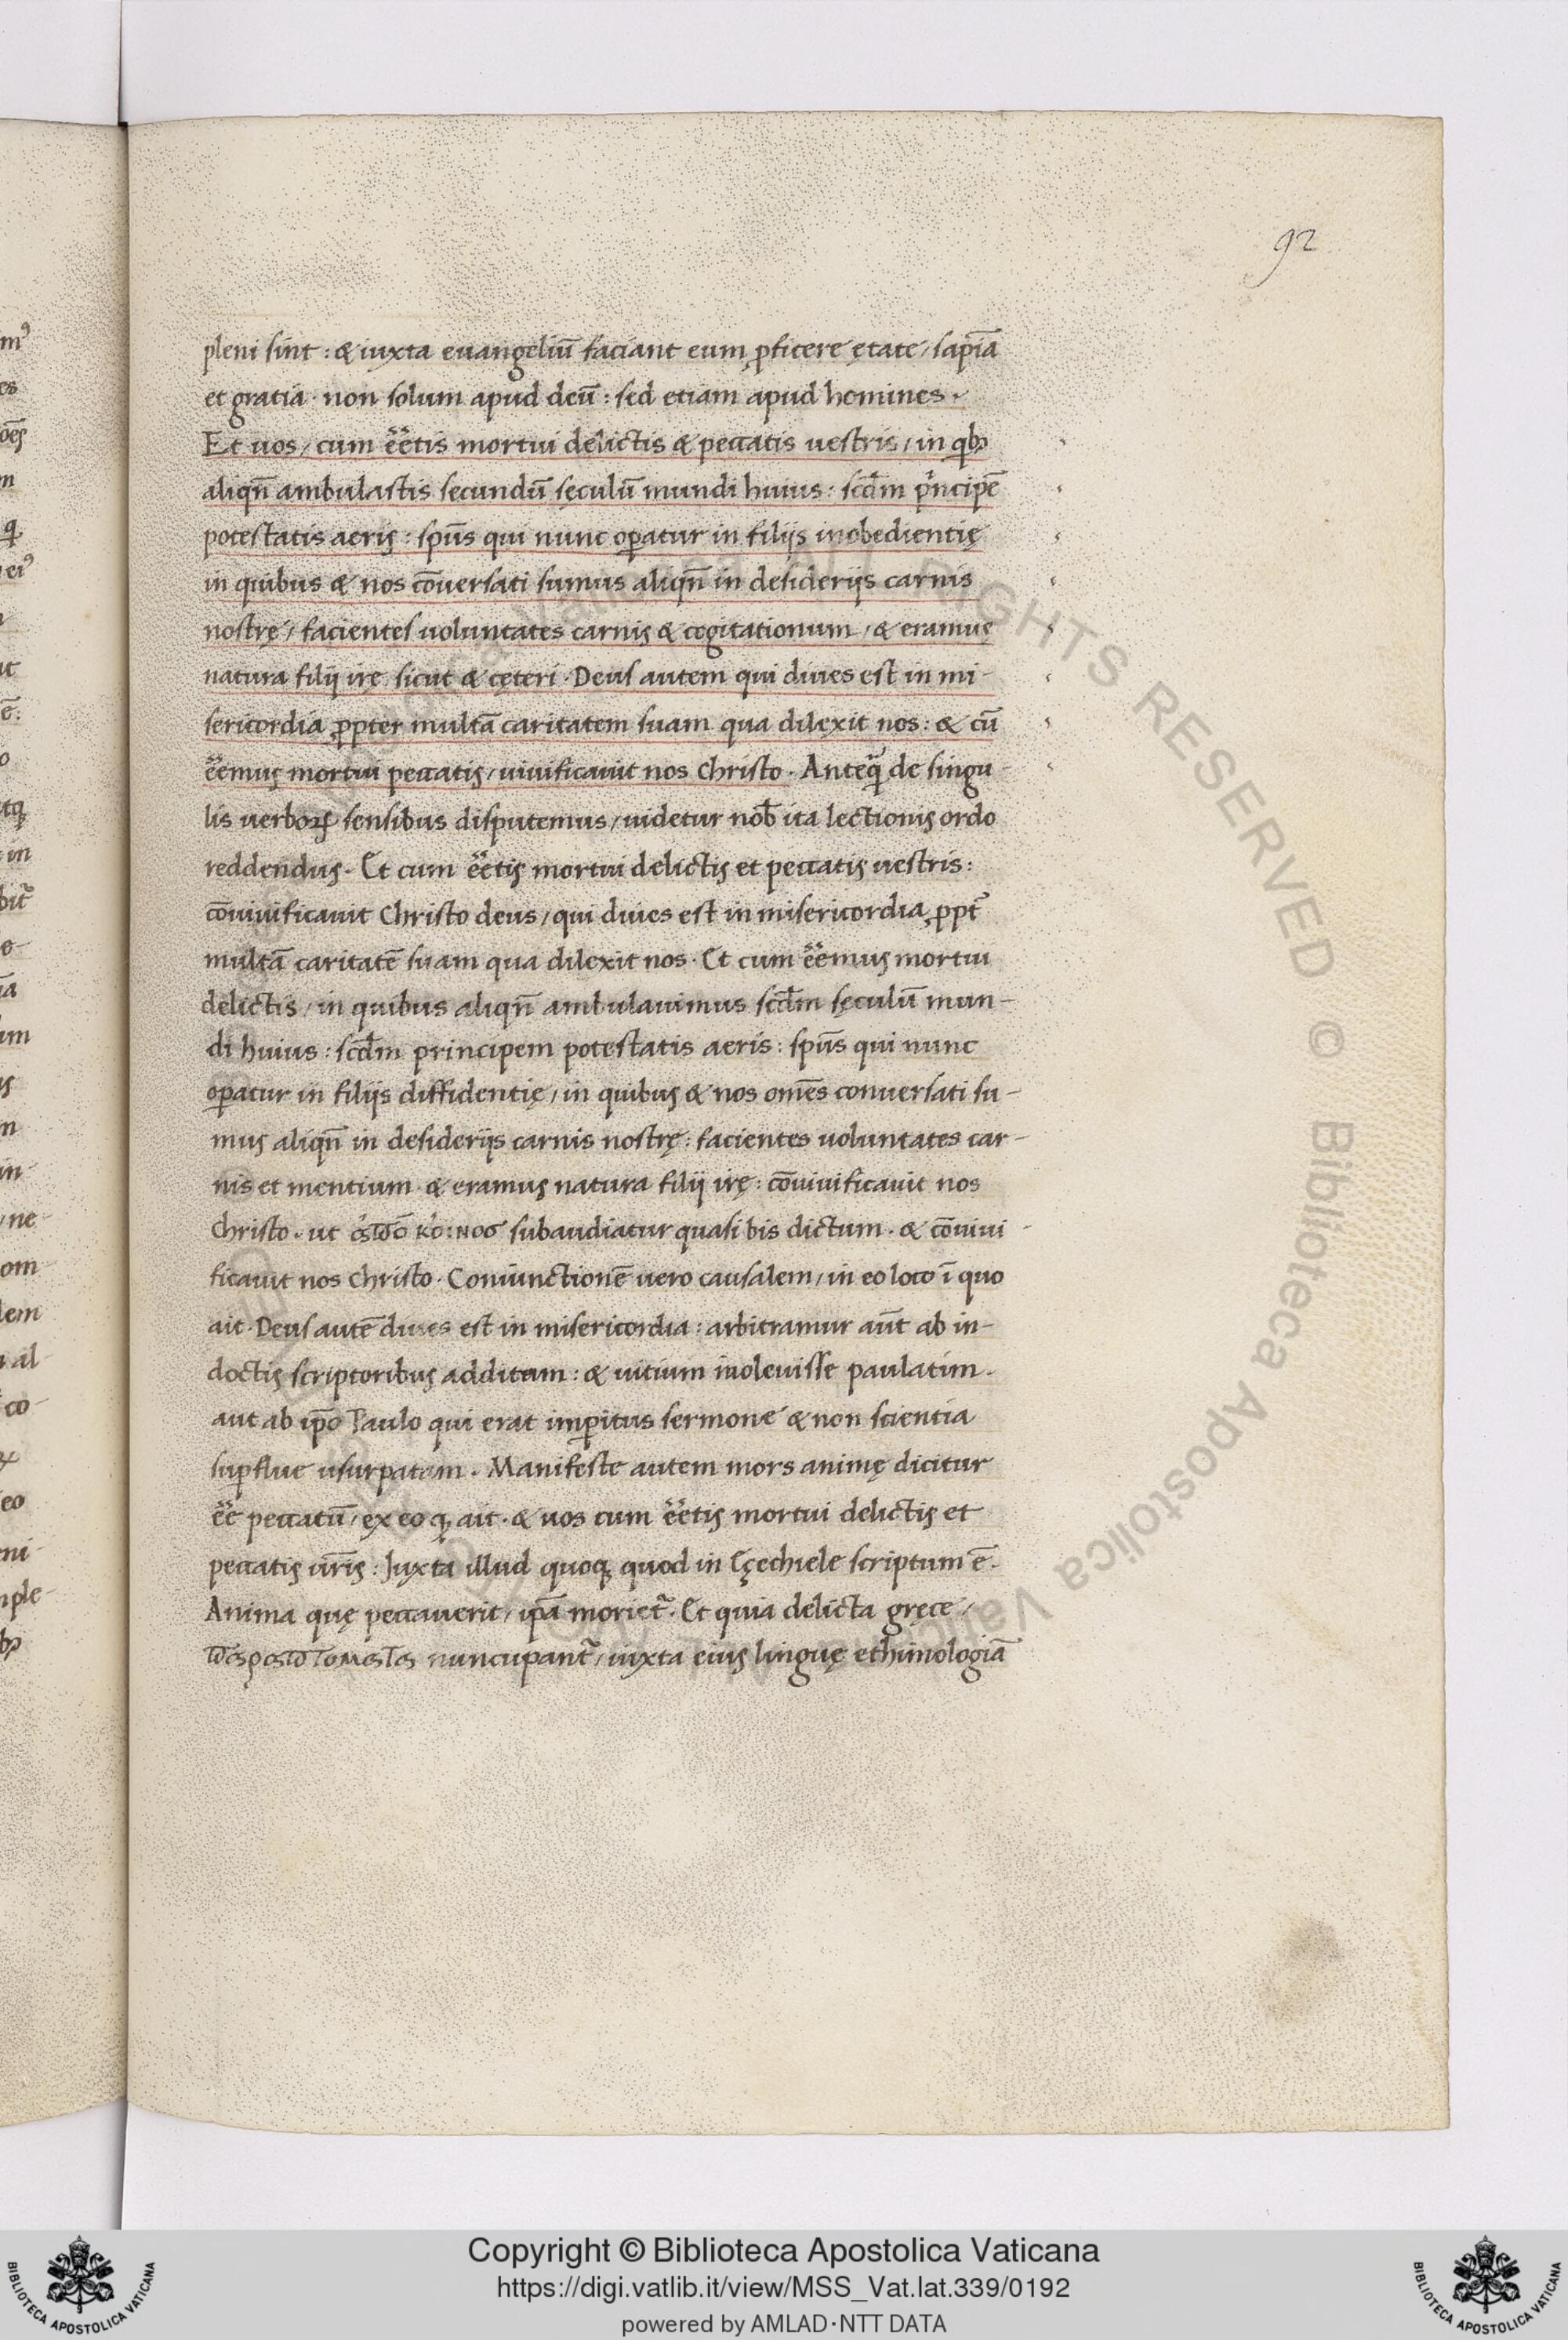 92
pleni sint : & iuxta euangeliũ faciant eum ꝓficere ętate / sapĩa
et gratia · non solum apud deũ : sed etiam apud homines ·
Et uos / cum eẽtis mortui delictis & peccatis uestris / in qbꝫ
aliqñ ambulastis secundũ sęculũ mundi huius : scđm pͥncipẽ
potestatis aeris : spũs qui nunc oꝑatur in filijs inobedientię
in quibus & nos cõuersati sumus aliqñ in desiderijs carnis
nostrę / facientes uoluntates carnis & cogitationum / & eramus
natura filij irę sicut & cęteri · Deus autem qui diues est in mi-
sericordia ꝓpter multã caritatem suam qua dilexit nos : & cũ
eẽmus mortui peccatis / uiuificauit nos Christo · Anteqͣ̃ de singu-
lis uerboꝝ sensibus disputemus / uidetur nob̃ ita lectionis ordo
reddendus · Et cum eẽtis mortui delictis et peccatis uestris :
cõuiuificauit Christo deus / qui diues est in misericordia ꝓpt̃
multã caritatẽ suam qua dilexit nos · Et cum eẽmus mortui
delictis / in quibus aliqñ ambulauimus scđm sęculũ mun-
di huius : scđm principem potestatis aeris : spũs qui nunc
oꝑatur in filijs diffidentię / in quibus & nos om̃es conuersati su-
mus aliqñ in desiderijs carnis nostrę : facientes uoluntates car-
nis et mentium · & eramus natura filij irę : cõuiuificauit nos
Christo · ut ἀπὸ κοινοῦ subaudiatur quasi bis dictum · & cõuiui-
ficauit nos Christo · Coniunctionẽ uero causalem / in eo loco ĩ quo
ait · Deus autẽ diues est in misericordia : arbitramur aũt ab in-
doctis scriptoribus additam : & uitium inoleuisse paulatim ·
aut ab ip̃o Paulo qui erat imꝑitus sermone & non scientia
suꝑflue usurpatam · Manifeste autem mors animę dicitur
eẽ peccatũ / ex eo ꝗ ait · & uos cum eẽtis mortui delictis et
peccatis ur̃is : Juxta illud quoqꝫ quod in Eçechiele scriptum ẽ ·
Anima quę peccauerit / ip̃a moriet̃ · Et quia delicta gręce /
παραπτοματα nuncupant̃ / iuxta eius linguę ethimologiã
Copyright © Biblioteca Apostolica Vaticana
https://digi.vatlib.it/view/MSS_Vat.lat.339/0192
powered by AMLAD·NTT DATA